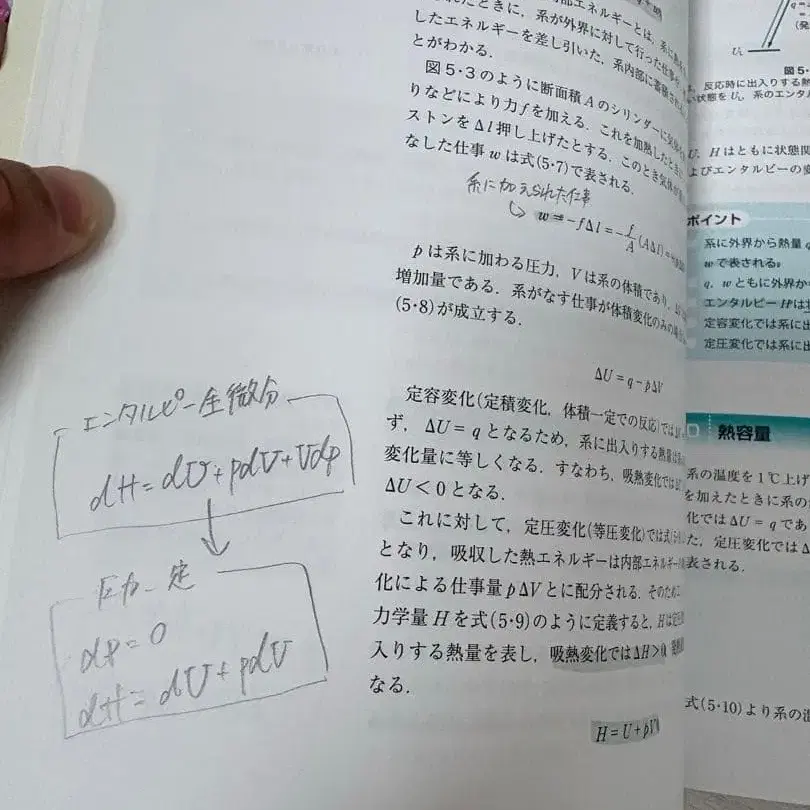 内部エネルギーとは、系に
れたときに、系が外界に対して行った仕事
したエネルギーを差し引いた、系内部に蓄積された
とがわかる.
図5・3のように断面積Aのシリンダーに気体
りなどにより力fを加える. これを加熱したとき
ストンをΔl押し上げたとする. このとき気体が
なした仕事wは式(5・7)で表される.
系に加えられた仕事
w=-fΔl=-f/A(AΔl)=
pは系に加わる圧力, Vは系の体積であり,
増加量である. 系がなす仕事が体積変化のみの場合
(5・8)が成立する.
ΔU=q-pΔV
定容変化(定積変化, 体積一定での反応)では
ず, ΔU=qとなるため, 系に出入りする熱量は
変化量に等しくなる. すなわち, 吸熱変化では
ΔU<0となる.
これに対して, 定圧変化(等圧変化)では式
となり, 吸収した熱エネルギーは内部エネルギー
化による仕事量pΔVとに配分される. そのため
力学量Hを式(5・9)のように定義すると, Hは定圧
入りする熱量を表し, 吸熱変化ではΔH>0,
なる.
H=U+pV
エンタルピー全微分
dH=dU+pdV+Vdp
圧力一定
dp=0
dH=dU+pdV
図5・
反応時に出入りする熱
い状態をU, 系のエンタル
U, Hはともに状態関
よびエンタルピーの変
ポイント
系に外界から熱量q
wで表される.
q, wともに外界か
エンタルピーHは状
定容変化では系に出
定圧変化では系に出
熱容量
系の温度を1℃上げ
を加えたときに系の
化ではΔU=qであ
た, 定圧変化ではΔ
表される.
式(5・10)より系の温